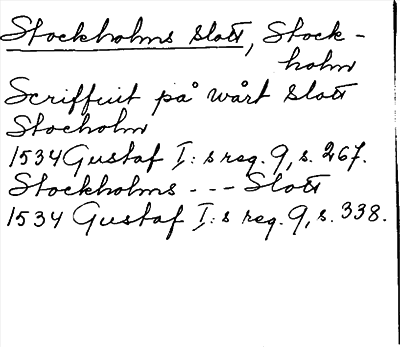 Stockholms slott, Stock-
holm
Scriffuit på wårt Slott
Stocholm
1534 Gustaf I:s reg. 9, s. 267.
Stockholms --- Slott
1534 Gustaf I:s reg. 9, s. 338.